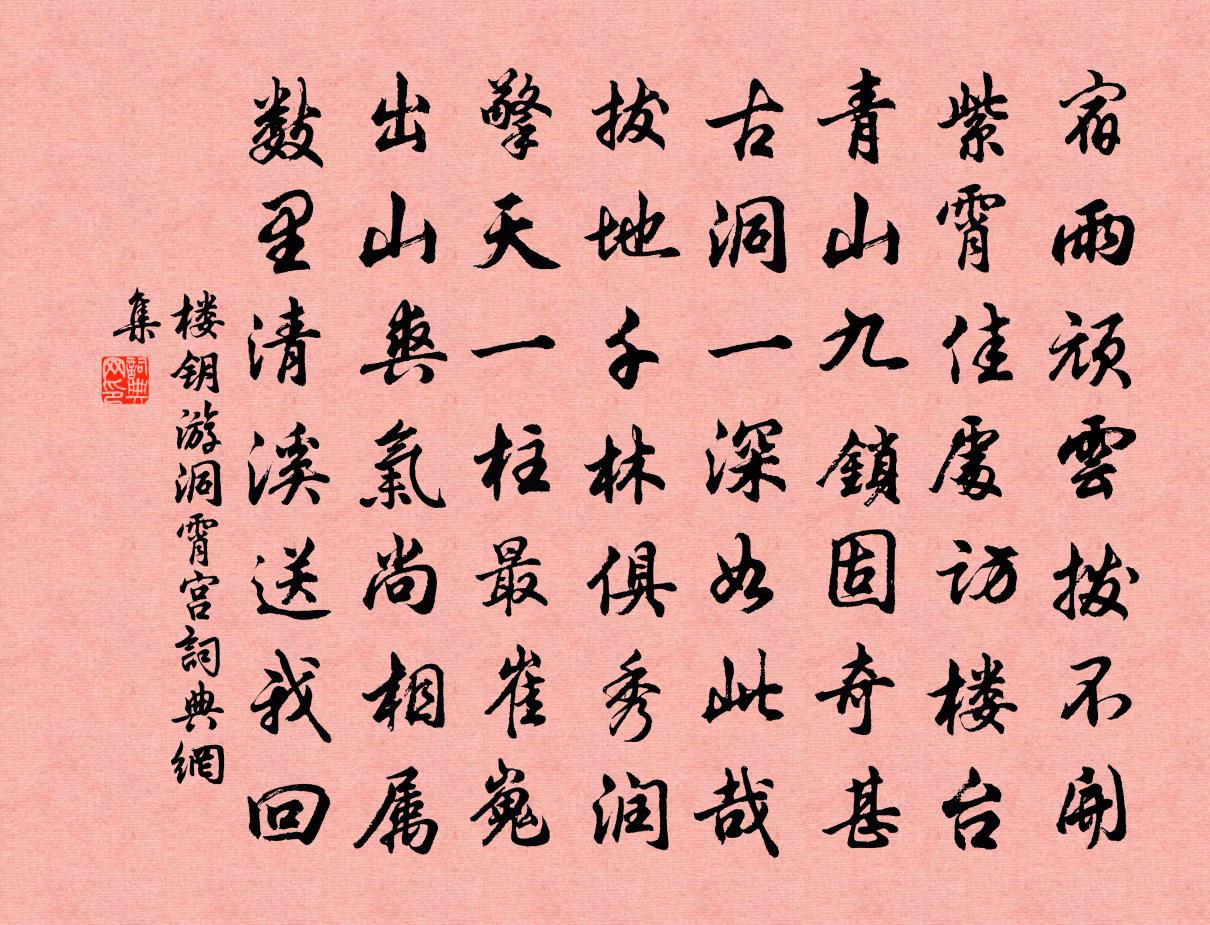 宿雨頑雲撥不開
紫霄佳處訪楼台
青山九鎖固奇甚
古洞一深如此哉
拔地千林俱秀润
擎天一柱最崔嵬
出山爽氣尚相属
数里清溪送我回
楼钥游洞霄宫詞典網
集
詞典
网印